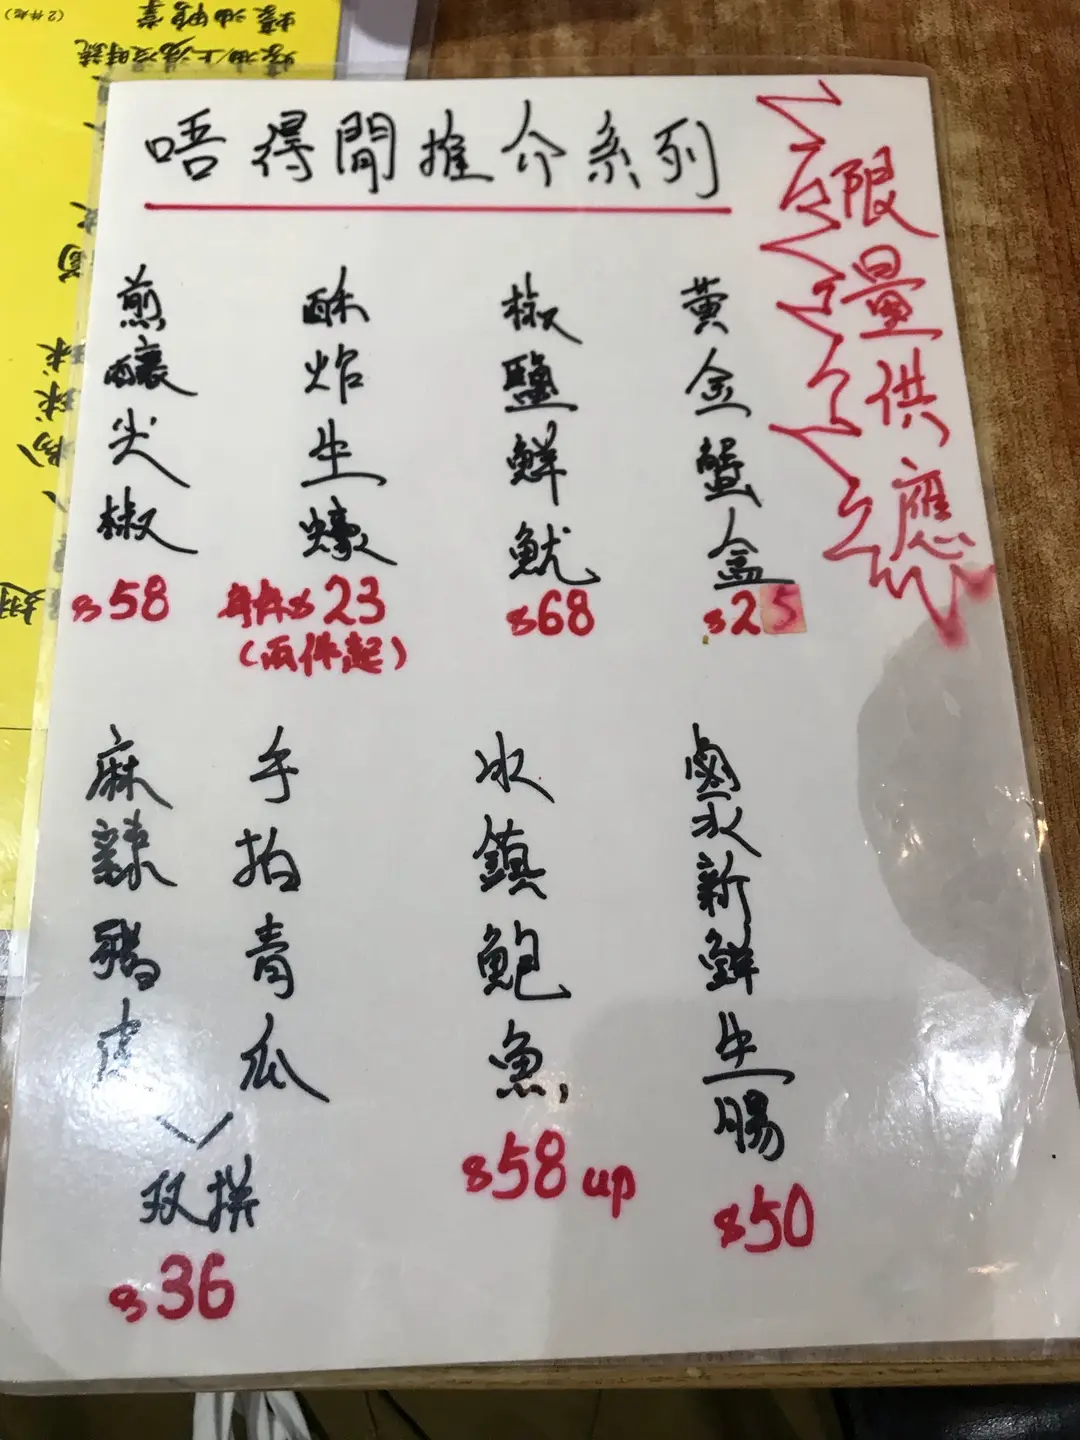 唔得閒推介系列
限量供應
黃金蟹盒
$25
椒鹽鮮魷
$68
酥炸生蠔
$23
(兩件起)
煎釀尖椒
$58
鹵水新鮮生腸
$50
冰鎮鮑魚
$58 up
手拍青瓜
麻辣豬皮
双拼
$36
(2件起)